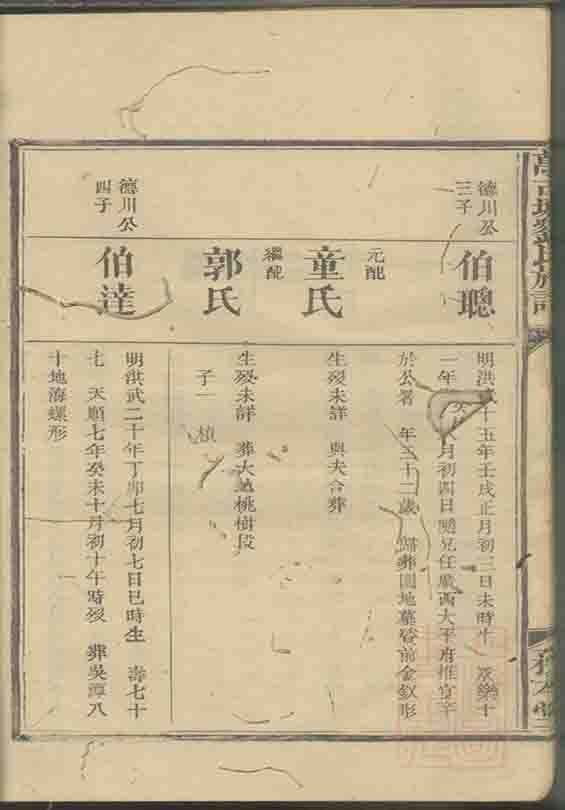 德川公
三子
伯聰
明洪 十五年壬戌正月初三日未時生 永樂十
一年 月初四日隨兄任廣西大平府推官卒
於公署 年三十二歲 歸葬園地墓 前金釵形
元配
童氏
生歿未詳 與夫合葬
繼配
郭氏
生歿未詳 葬大 桃樹段
子一 楨
德川公
四子
伯達
明洪武二十年丁卯七月初七日巳時生 壽七十
七 天順七年癸未十月初十午時歿 葬吳潭八
十地海螺形
劉氏族譜